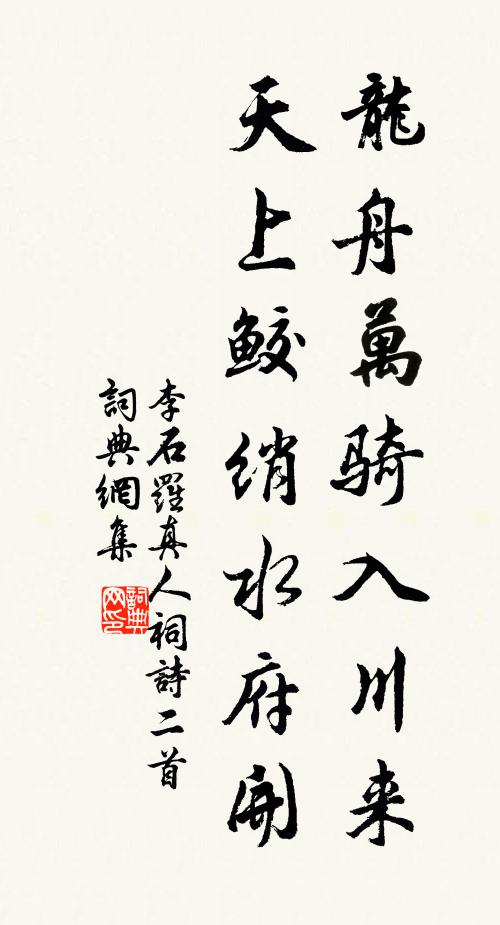 龍舟萬骑入川来
天上鮫绡水府開
李石羅真人祠詩二首
詞典網集
詞典网印